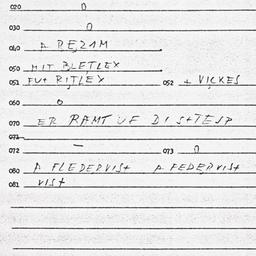 020 0
030 0
040 A BEZAM
050 MIT BLETLEX
051 FUT RITLEX 052 + VICKES
060 0
070 ER RAMT UF DI STESP
071
072 — 073 0
080 A FLEDERVIST A FEDERVIST
081 VIST